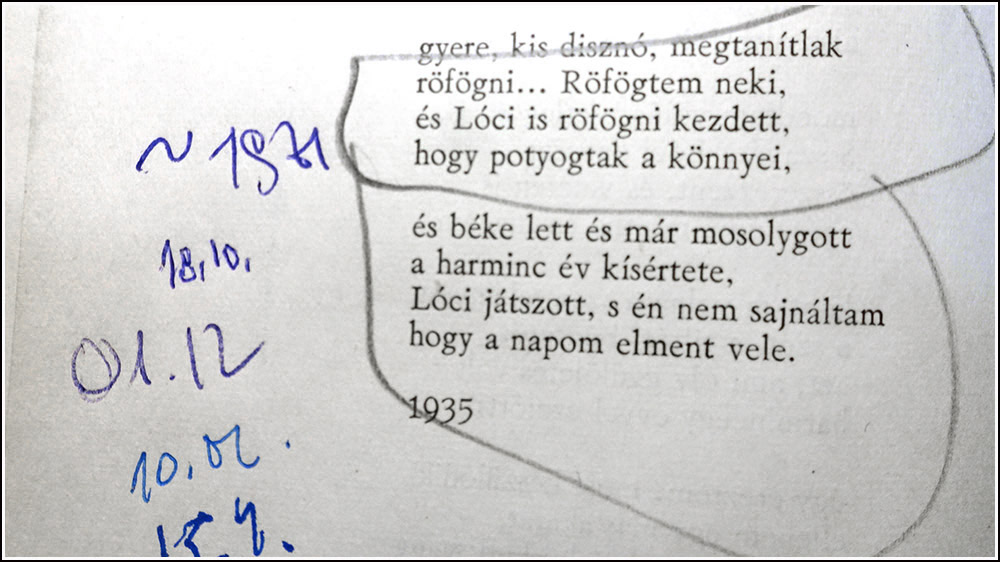 gyere, kis disznó, megtanítlak
röfögni... Röfögtem neki,
és Lóci is röfögni kezdett,
hogy potyogtak a könnyei,
~ 1971
és béke lett és már mosolygott
a harminc év kísértete,
Lóci játszott, s én nem sajnáltam
hogy a napom elment vele.
1935
18.10.
01.12